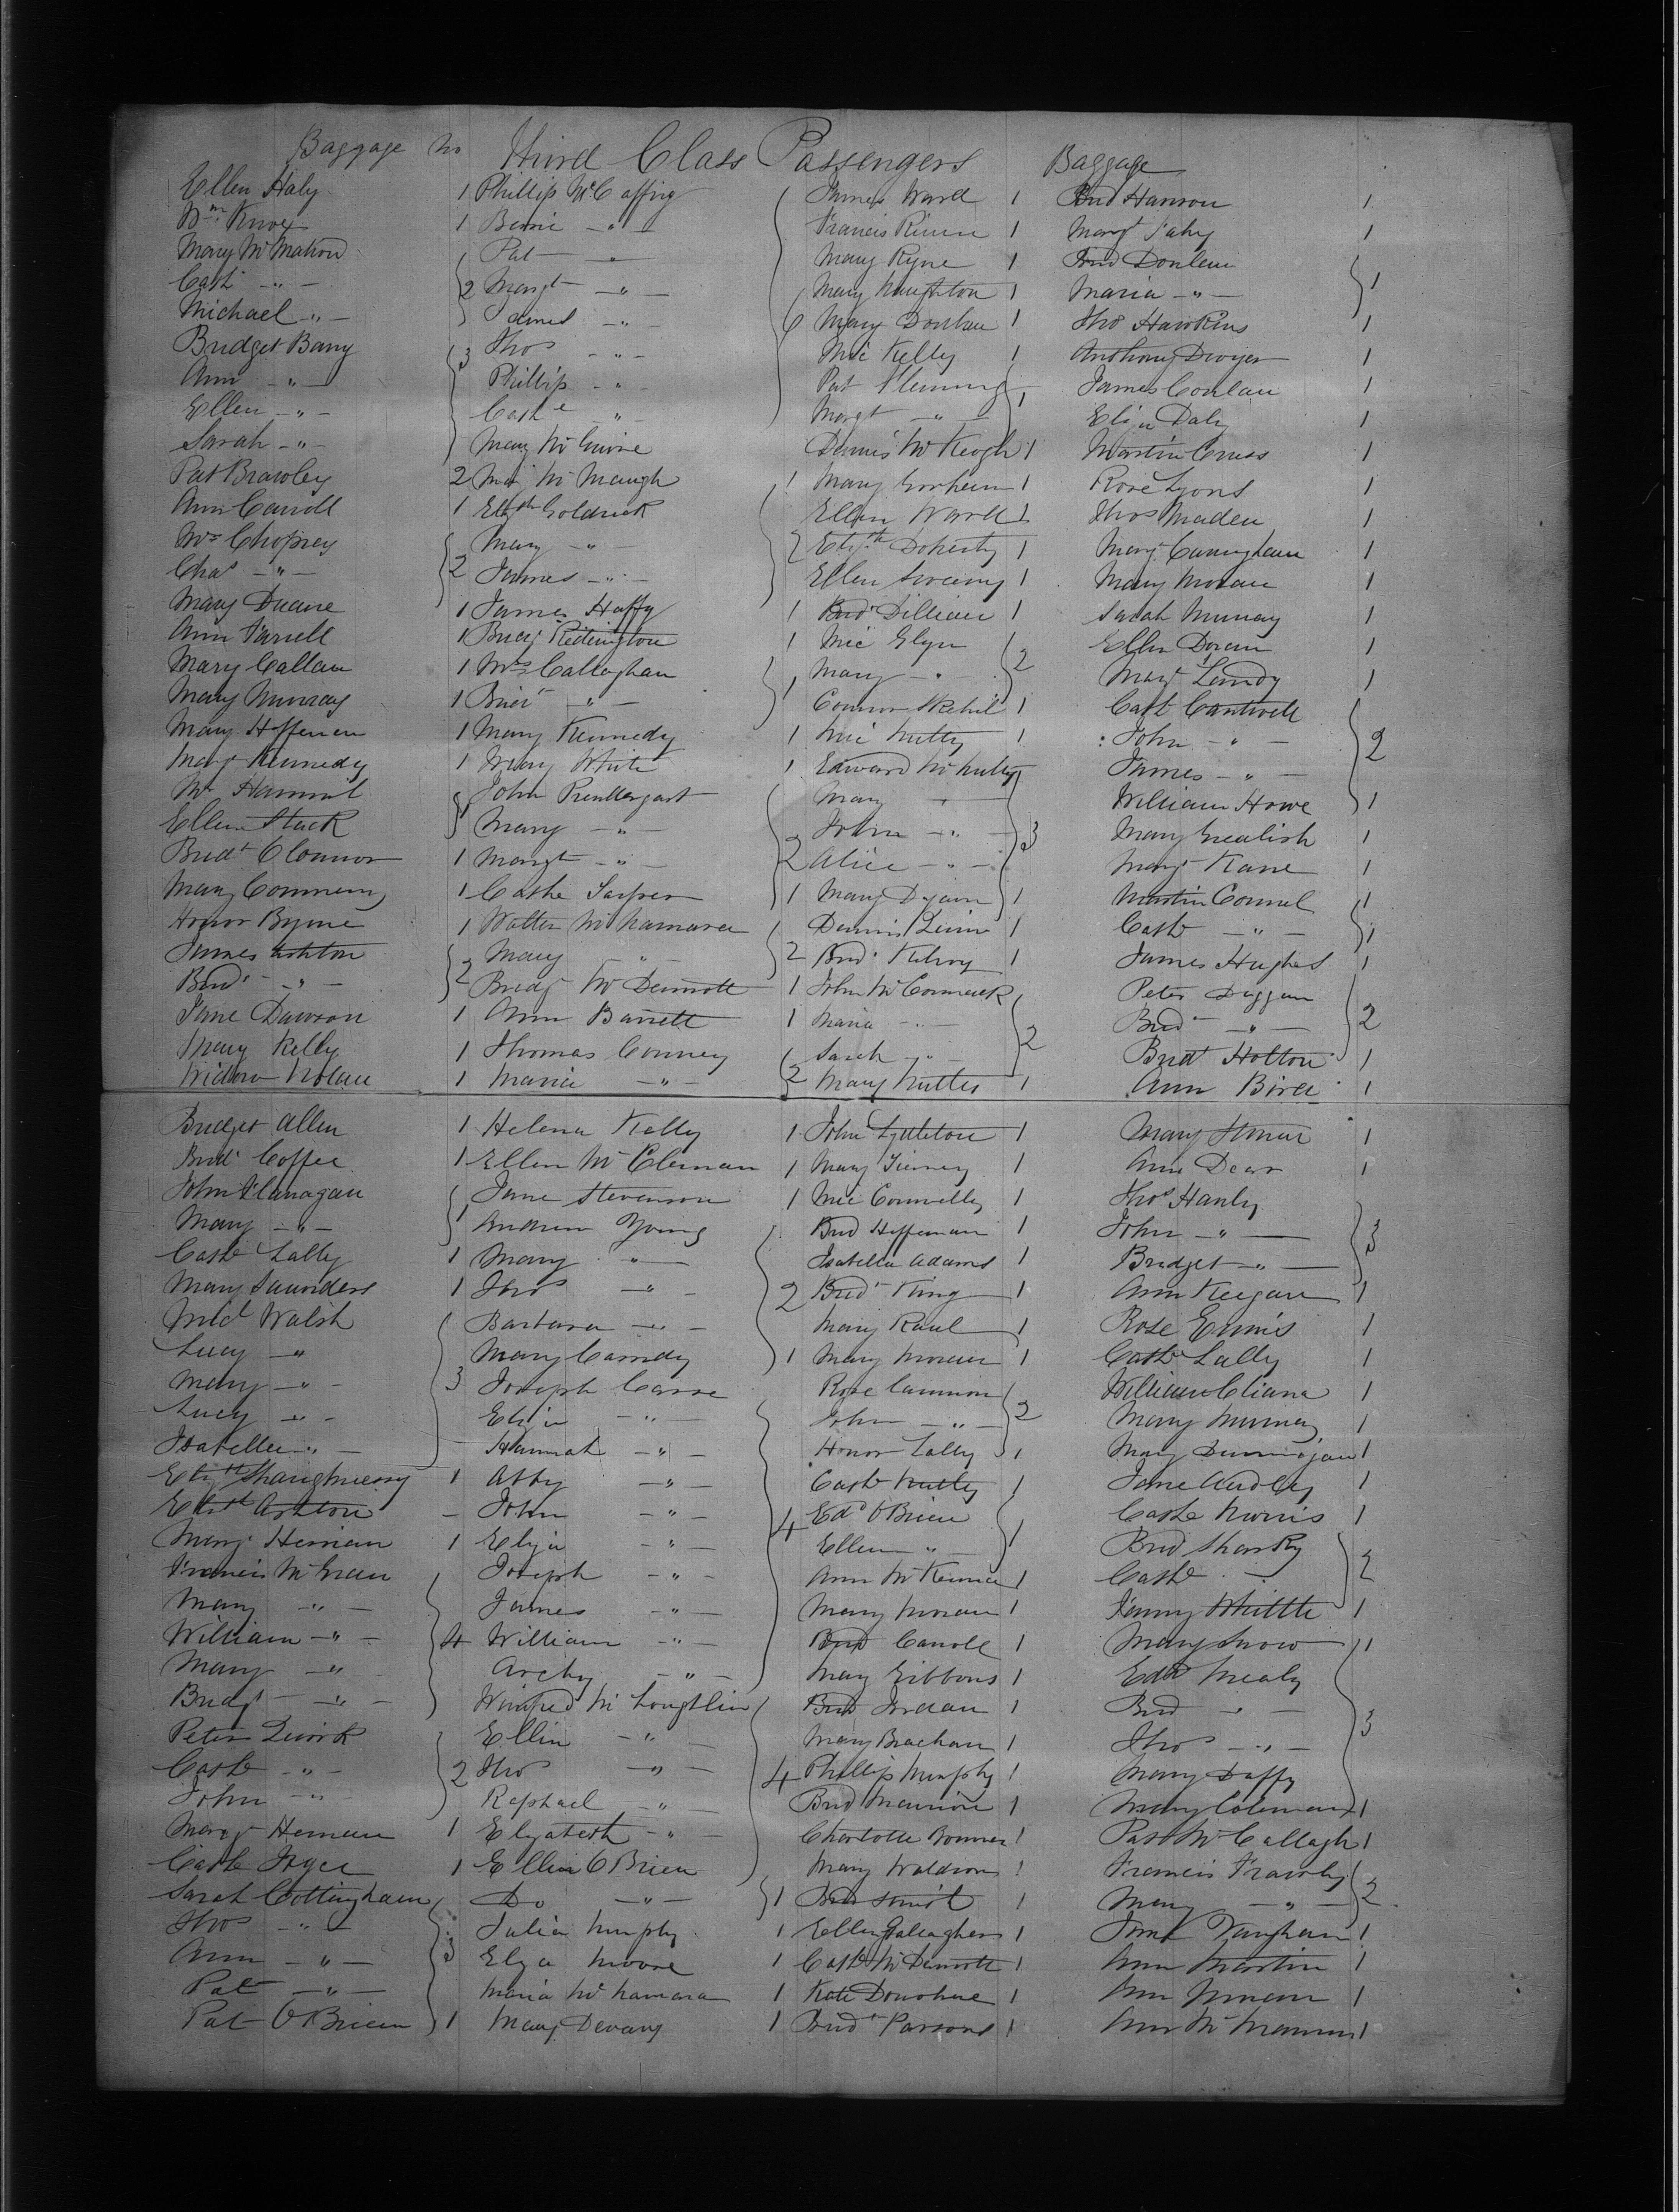 Baggage No Third Class Passengers Baggage
Ellen Haly 1 Phillip McCaffry James Ward 1 Brid Hanron 1
Wm Knox 1 Bernie -"- Francis Rinn 1 Margt Fahy 1
Mary McMahon Pat -"- Mary Ryne 1 Brid Donlan
Cath -"- 2 Margt -"- Mary Naughton 1 Maria -"- 1
Michael -"- James -"- 6 Mary Donlan 1 Thos Hawkins 1
Bridget Barry 3 Thos -"- Mic Kelly 1 Anthony Dwyer 1
Ann -"- Phillip -"- Pat Fleming James Conlan 1
Ellen -"- Cathe " Margt -"- 1 Eliza Daly 1
Sarah -"- Mary McGuire Dennis McKeogh 1 Martin Cruss 1
Pat Brawley 2 McMaugh 1 Mary Gorham 1 Rose Lyons 1
Ann Carroll 1 Elizth Goldrick Ellen Ward 1 Thos Maden 1
Mrs Mary -"- 2 Elizth Doherty 1 Mary Cunningham 1
Chas -"- 2 James -"- Ellen Sweeny 1 Mary Moran 1
Mary Duane 1 James Haffy 1 Brid Dillian 1 Sarah Murray 1
Ann Farrell 1 Bridg Redington 1 Mic Glyn 2 Ellen Doran 1
Mary Callan 1 Mrs Callaghan Mary -"- Margt Lundy 1
Mary Murray 1 -"- 1 Connor 1 Cath Cantwell
Mary Heffernan 1 Mary Kennedy 1 Mic Nutty 1 John -"- 2
Margt Kennedy 1 Mary White 1 Edward McNulty James -"-
John Prendergast Mary " William Howe 1
Ellen Stack 1 Mary -"- John -"- 3 Mary Grealish 1
Bridt O Connor 1 Margt -"- 2 Alice -"- Margt Kane 1
Mary 1 Cathe 1 Mary 1 Martin Connel 1
Honor Byrne 1 Walter McNamara Dennis Quinn 1 Cath -"- 1
James Ashton Mary " 2 Brid Kilroy 1 James Hughes 1
Brid -"- 2 Bridgt McDermott 1 John McCormick Peter Duggan
Jane Dawson 1 Ann Barrett 1 Maria -"- 2 Brid -"- 2
Mary Kelly 1 Thomas Conney Sarah -"- Bridt Holton 1
Widow Nolan 1 Maria -"- 2 Mary Nuttes 1 Ann Bird 1
Bridget Allen 1 Helena Kelly 1 John Lyttleton 1 Mary 1
Brid Coffee 1 Ellen McCleman 1 Mary Tierney 1 Ann Dear 1
John Flanagan Jane Stevenson 1 Mic Connelly 1 Thos Hanly
Mary -"- 1 Andrew Young Brid Heffernan 1 John -"- 3
Cathe Lally 1 Mary " Isabella Adams 1 Bridget -"-
Mary Saunders 1 Thos -"- 2 Brid King 1 Ann Keegan 1
Micl Walsh Barbara -"- Mary Raul 1 Rose Ennis 1
Lucy -"- Mary Cassidy 1 Mary Moran 1 Cathe Lally 1
Mary -"- 3 Joseph Carse Rose Cannon William Cliana 1
Lucy -"- Eliza -"- John -"- 2 Mary Murray 1
Isabella -"- Hannah -"- Honor Lally 1 Mary 1
Elizth Shaughnessy 1 Abby -"- Cath Nutley 1 Jane Audley 1
Elizth Ashton - John -"- 4 Edd O'Brien Cathe Norris 1
Margt Hernan 1 Eliza -"- Ellen " 1 Brid Sharky
Francis McGrau Joseph -"- Ann McKenna 1 Cath - 2
Mary -"- James -"- Mary Moran 1 Jenny Whittle 1
William -"- 4 William -"- Brid Carroll 1 Mary Snow 1
Mary -"- Archy -"- Mary Gibbons 1 Edd Nealy
Bridgt -"- Winifred McLoughlin Brid Jordan 1 Brid -"-
Peter Quirk Ellin -"- Mary Bracham 1 Thos -"- 3
Cath -"- 2 Thos -"- 4 Phillip Murphy 1 Mary Duffy
John -"- Raphael -"- Brid Mannion 1 Mary Coleman 1
Margt Hernan 1 Elizabeth -"- Charlotte Bonner 1 Pat McCallagh 1
Cathe Joyce 1 Ellen O Brien Mary Waldron 1 Francis Frawley
Sarah Cottingham Do -"- 1 Brid 1 Mary -"- 2
Thos -"- Julia Murphy 1 Ellen Gallagher 1 Vaughan 1
Ann -"- 3 Eliza Moore 1 Cath McDermott 1 Ann Martin 1
Pat -"- Maria McNamara 1 Kate Donohue 1 Ann Moran 1
Pat O'Brien 1 Mary Devany 1 Brid Parsons 1 Ann McManus 1